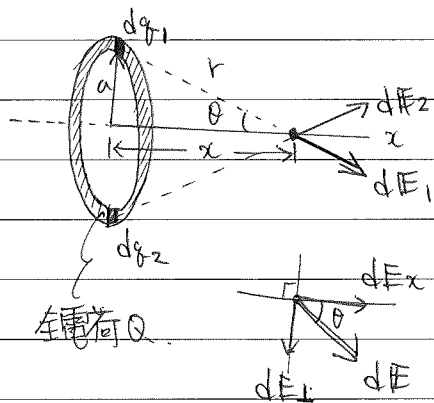 dq₁
a
r
θ
x
x
dE₂
dE₁
dq₂
全電荷Q
dEx
θ
dE⊥
dE